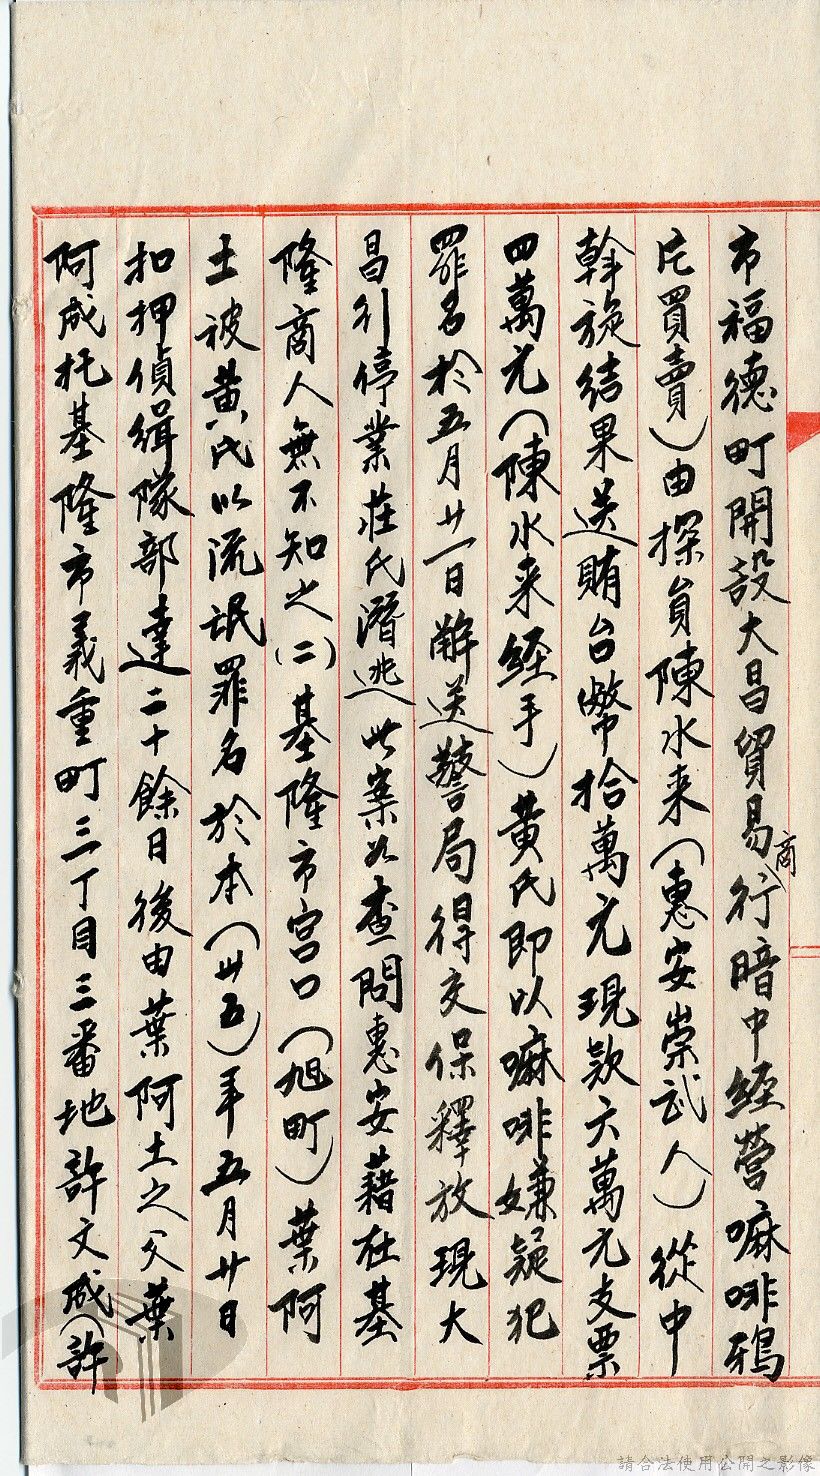 市福德町開設大昌貿易商行暗中經營嗎啡鴉
片買賣）由探員陳水来（惠安崇武人）從中
斡旋结果送賄台幣拾萬元現款六萬元支票
四萬元（陳水来経手）黄氏即以嗎啡嫌疑犯
罪名於五月廿一日解送警局得交保釋放現大
昌行停業莊氏潛逃此案如查問惠安藉在基
隆商人無不知之(二)基隆市宫口（旭町）葉阿
土被黄氏以流氓罪名於本（卅五）年五月廿日
扣押偵緝隊部達二十餘日後由葉阿土之父葉
阿成托基隆市義重町三丁目三番地許文成（許
請合法使用公開之影像